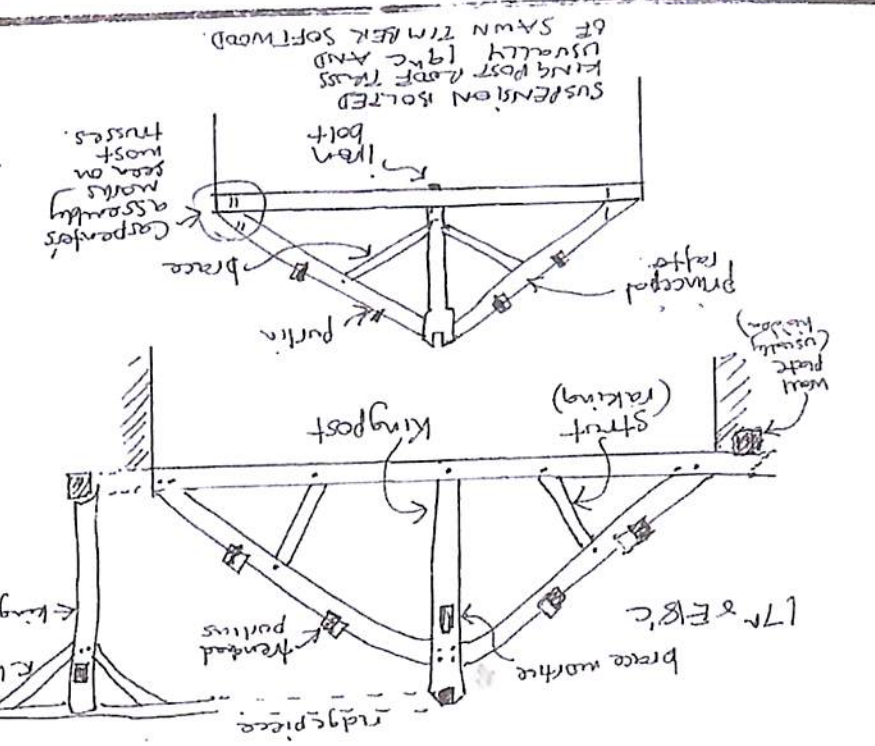 ridgepiece
brace mortice
trenched
purlins
17th & E18thC
king
strut
(raking)
Kingpost
wall
plate
(usually
hidden)
purlin
principal
rafter
brace
Carpenter's
assembly
marks
seen on
most
trusses.
iron
bolt
SUSPENSION BOLTED
KINGPOST ROOF TRUSS
USUALLY 19thC AND
OF SAWN TIMBER SOFTWOOD.